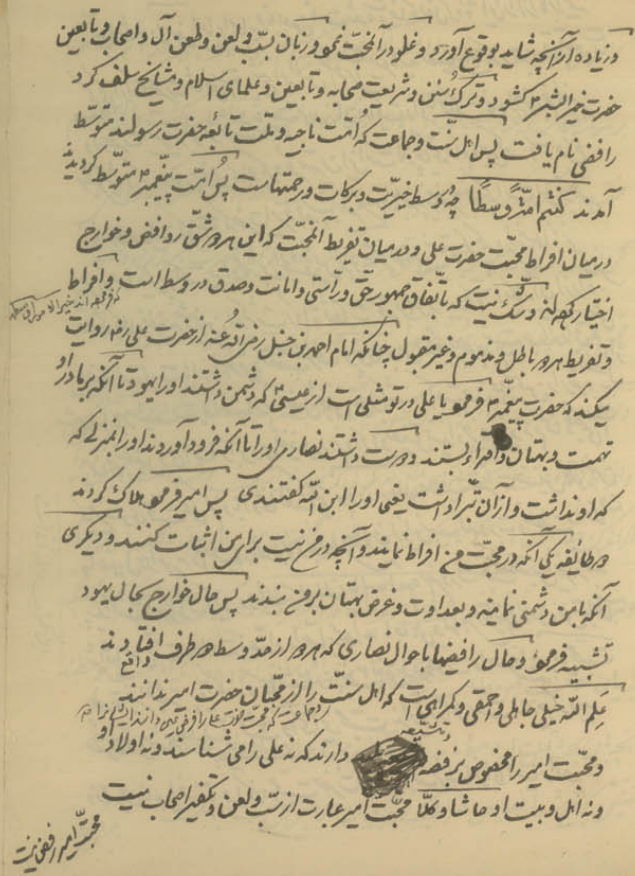 و زیاده از آنچه شاید بوقوع آورد و غلو در آن محبّت نمود و زبان بسبّ و لعن و طعن آل و اصحاب و تابعین
حضرت خیر البشر ﷺ کشود و ترک سنن و شریعت صحابه و تابعین و علمای اسلام و مشایخ سلف کرد
رافضی نام یافت پس اهل سنّت و جماعت که امّت ناجیه و ملت تابعه حضرت رسولند متوسّط
آمدند کنتم امّة وسطًا چه وسط خیریّت و برکات و رحمتهاست پس امّت پیغمبر متوسّط گردید
درمیان افراط محبّت حضرت علی و درمیان تفریط آن محبّت که این هر دو شقّ روافض و خوارج
اختیار و شک نیست که باتفاق جمهور حق و راستی و امانت و صدق در وسط است و افراط
و تفریط هر دو باطل و مذموم و غیر مقبول چنانکه امام احمد بن حنبل رضی الله عنه از حضرت علی رض روایت
میکند که حضرت پیغمبر فرمود یا علی در تو مثلی است از عیسی که دشمن داشتند او را یهود تا آنکه بر مادر او
تهمت و بهتان و افتراء بستند و دوست داشتند نصاری او را تا آنکه فرود آوردند او را بمنزلی که
که او نداشت و از آن تبرّا داشت یعنی او را ابن الله گفتندی پس امیر فرمود هلاک کردند
دو طائفه یکی آنکه در محبّت من افراط نمایند و آنچه در من نیست برای من اثبات کنند و دیگری
آنکه با من دشمنی نمایند و بعداوت و غرض بهتان بر من بندند پس حال خوارج بحال یهود
تشبیه فرمود و حال رافضیها باحوال نصاری که هر دو از حدّ وسط دو طرف افتادند
علم الله خیلی جاهلی و احمقی و گمراهی است که اهل سنّت را از محبّان حضرت امیر ندانند
و محبّت امیر را مخصوص برفضه دارند که نه علی را می شناسند و نه اولاد او
و نه اهل و بیت او حاشا و کلّا محبّت امیر عبارت از سبّ و لعن و تکفیر اصحاب نیست
محبّت امیر رفض نیست